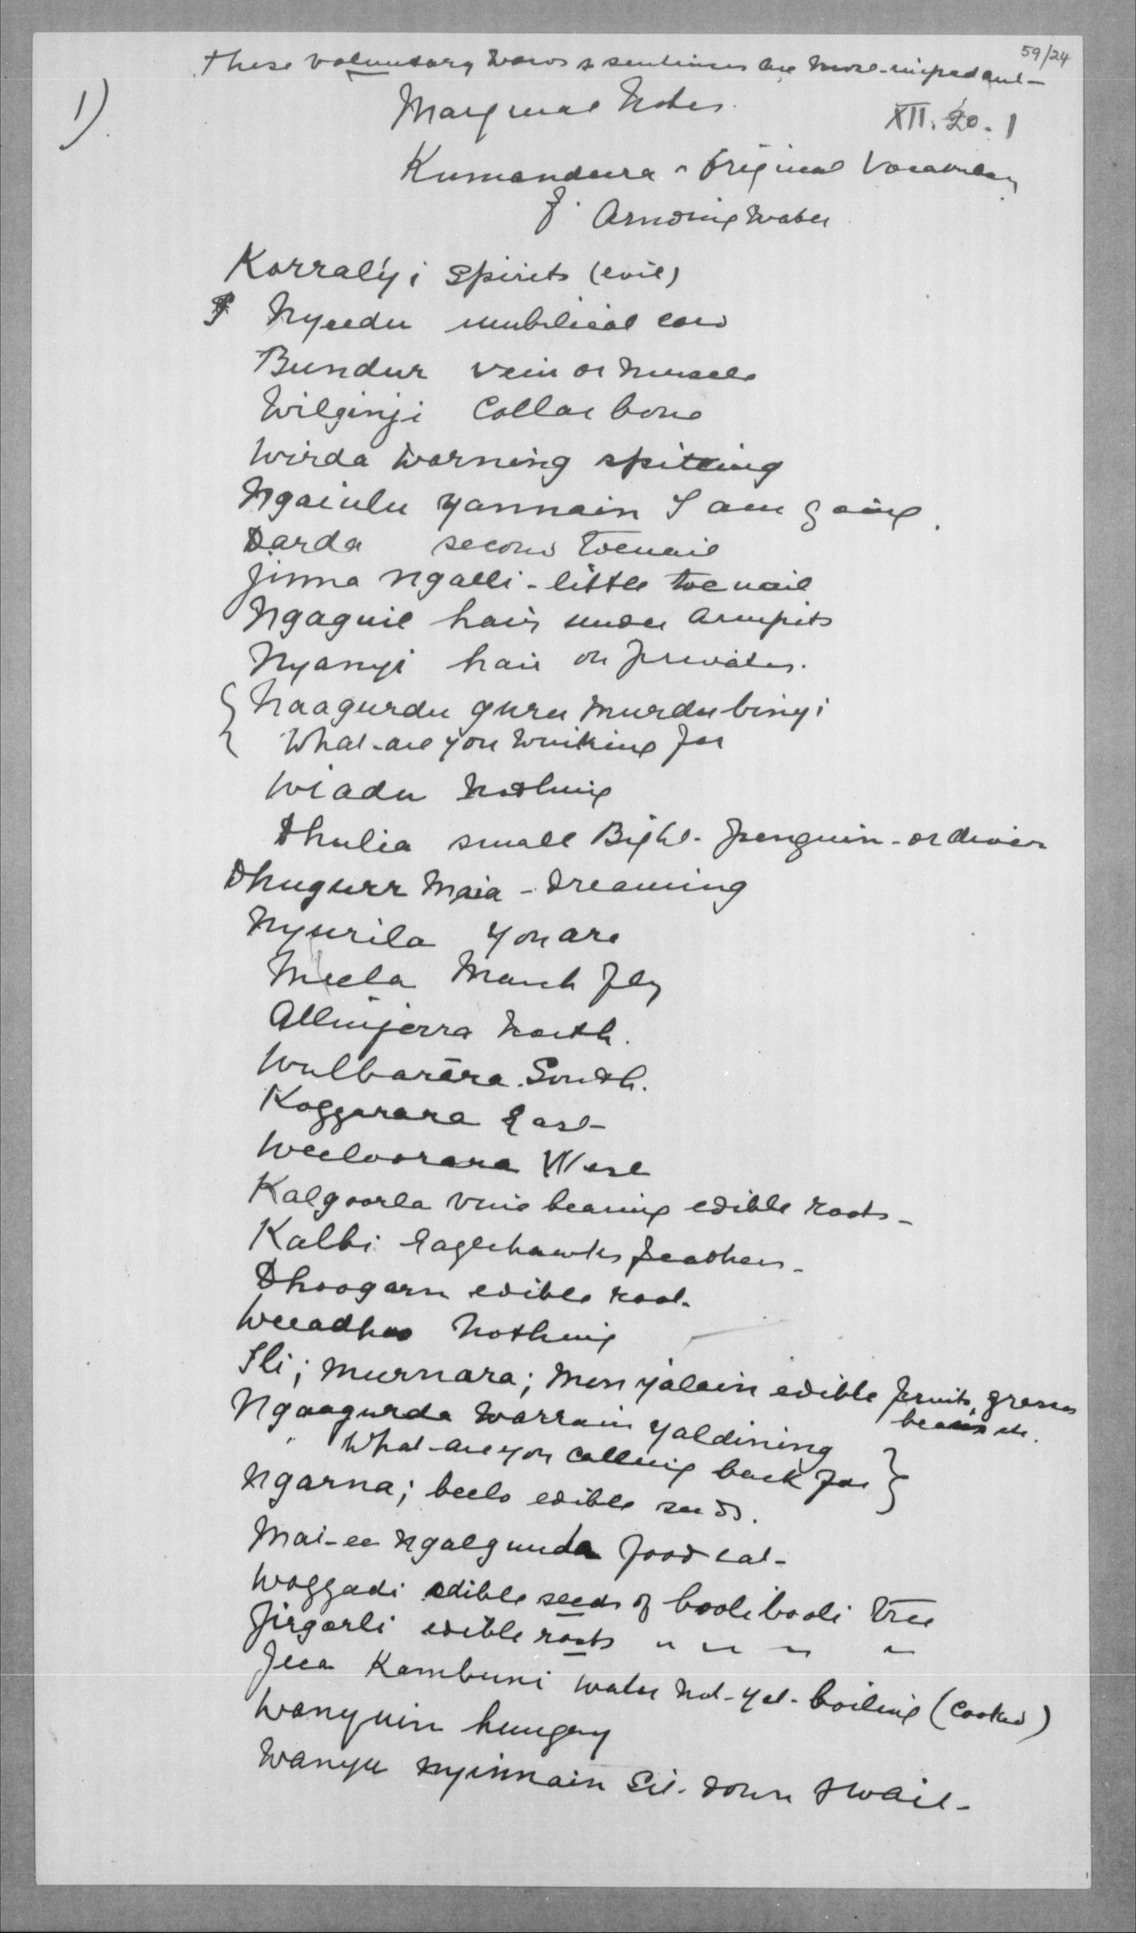 59/24
These voluntary words & sentences are more important
1)
Marginal Notes.
XII. 20. 1
Kumandura's Original Vocabulary
f. Arnding Water
Korralyi spirits (evil)
Nyeedu umbilical cord
Bundur vein or muscle
Wilginji Collar bone
Wirda warning spitting
Ngaiulu yannain I am going.
Darda second toenail
Jinna ngalli - little toe nail
Ngaguil hair under armpits
Nyanyi hair on privates.
Naagurdu guru murdubinyi
What are you winking for
Wiadu Nothing
Dhulia small Bight penguin or diver
Dhugurr Maia - Dreaming
Nyurila you are
Meela March fly
Allinjerra North.
Wulbarēra South.
Koggarara East
Weeloorara West
Kalgoorla vine bearing edible roots -
Kalbi Eaglehawks feathers -
Dhoogarn edible root.
Weeadhoo Nothing
Ili; murnara; mon yalain edible fruits, grasses
beans etc.
Ngaagurda warrain yaldining
What are you calling back for
Ngarna; beelo edible seeds.
Mai-ee ngalgunda food eat -
Woggadi edible seeds of booli booli tree
Jirgarli edible roots " " " "
Jeea Kambuni water not yet boiling (cooked)
Wanyuin hungry
Wanyu nyinnain Sit down & wait -